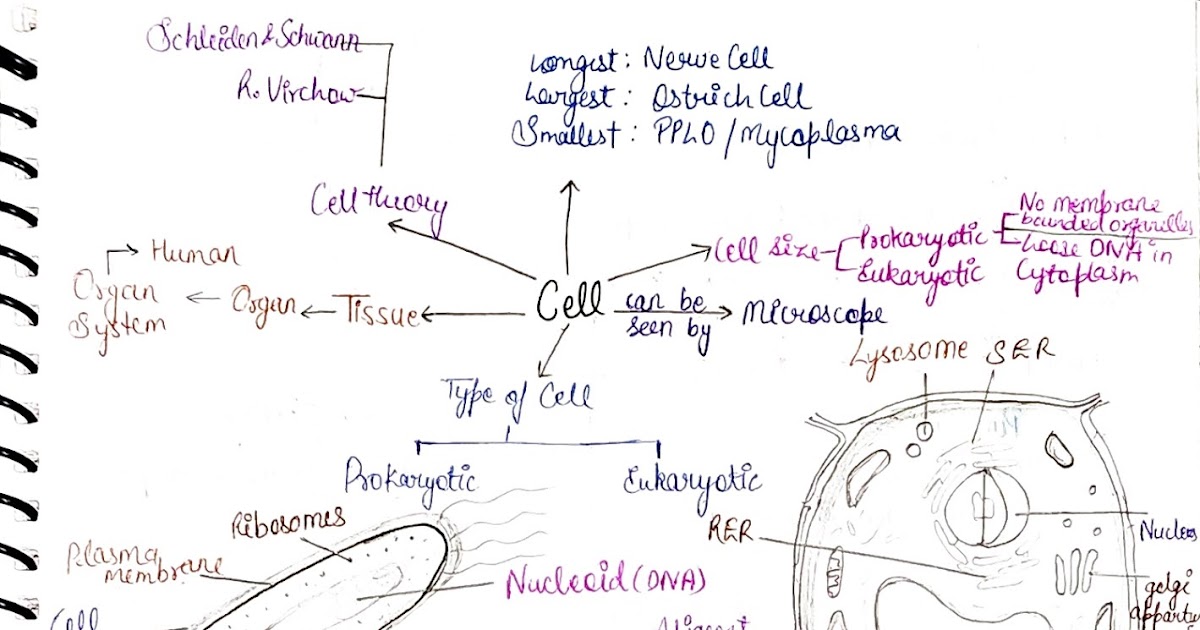 Schleiden & Schwann
R. Virchow
Longest : Nerve Cell
Largest : Ostrich Cell
Smallest : PPLO / Mycoplasma
Cell theory
No membrane
bounded organilles
Loose DNA in
Cytoplasm
Cell size
Prokaryotic
Eukaryotic
Human
Organ
System
Organ
Tissue
Cell
can be
seen by
Microscope
Type of Cell
Prokaryotic
Eukaryotic
Lysosome
SER
Ribosomes
Plasma
membrane
Nucleoid (DNA)
RER
Nucleus
golgi
Cell